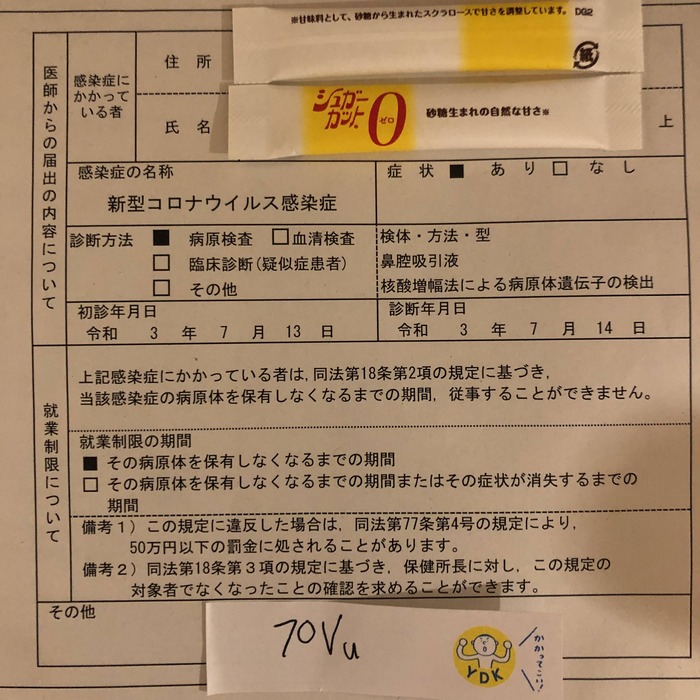 ※甘味料として、砂糖から生まれたスクラロースで甘さを調整しています。 DG2
紙
シュガーカット0 ゼロ 砂糖生まれの自然な甘さ※
医師からの届出の内容について
感染症にかかっている者
住所
氏名
上
感染症の名称
新型コロナウイルス感染症
症状 ■ あり □ なし
診断方法 ■ 病原検査 □血清検査
□ 臨床診断(疑似症患者)
□ その他
検体・方法・型
鼻腔吸引液
核酸増幅法による病原体遺伝子の検出
初診年月日
令和 3 年 7 月 13 日
診断年月日
令和 3 年 7 月 14 日
就業制限について
上記感染症にかかっている者は,同法第18条第2項の規定に基づき,
当該感染症の病原体を保有しなくなるまでの期間, 従事することができません。
就業制限の期間
■ その病原体を保有しなくなるまでの期間
□ その病原体を保有しなくなるまでの期間またはその症状が消失するまでの
期間
備考1) この規定に違反した場合は, 同法第77条第4号の規定により,
50万円以下の罰金に処されることがあります。
備考2) 同法第18条第3項の規定に基づき, 保健所長に対し, この規定の
対象者でなくなったことの確認を求めることができます。
その他
70Vu
YDK
かかってこい!